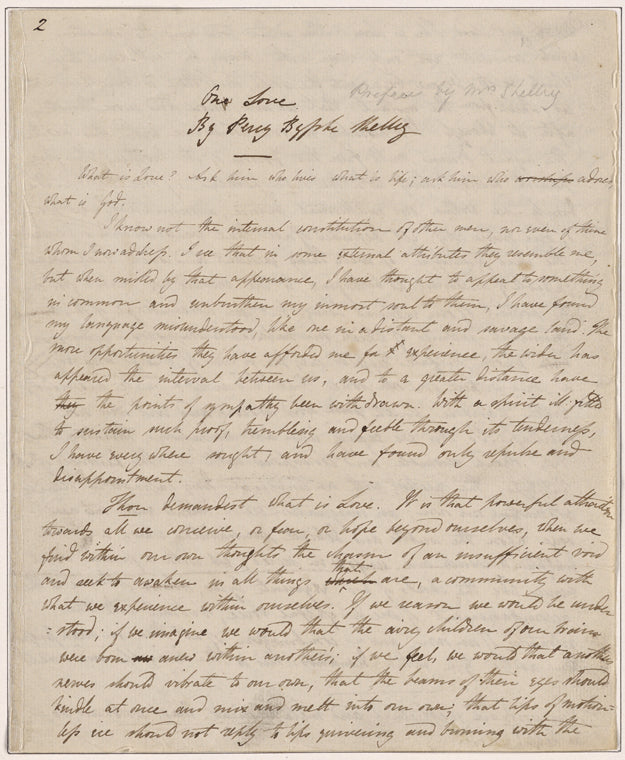 2
On Love
Preface by Mrs Shelley
By Percy Bysshe Shelley
What is Love? Ask him who lives what is life; ask him who worships adores,
what is God.
I know not the internal constitution of other men, nor even of thine
whom I now address. I see that in some external attributes they resemble me,
but when misled by that appearance, I have thought to appeal to something
in common and unburthen my inmost soul to them, I have found
my language misunderstood, like one in a distant and savage land. The
more opportunities they have afforded me for experience, the wider has
appeared the interval between us, and to a greater distance have
they the points of sympathy been withdrawn. With a spirit ill fitted
to sustain such proof, trembling and feeble through its tenderness,
I have every where sought, and have found only repulse and
disappointment.
Thou demandest what is Love. It is that powerful attraction
towards all we conceive, or fear, or hope beyond ourselves, when we
find within our own thoughts the chasm of an insufficient void
and seek to awaken in all things that are, a community with
what we experience within ourselves. If we reason we would be under
=stood; if we imagine we would that the airy children of our brain
were born anew within another's; if we feel, we would that another's
nerves should vibrate to our own, that the beams of their eyes should
kindle at once and mix and melt into our own; that lips of motion=
less ice should not reply to lips quivering and burning with the